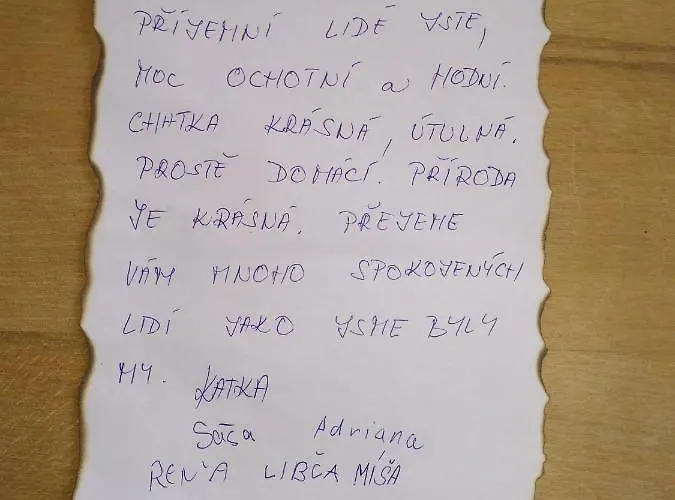 PŘÍJEMNÍ LIDÉ JSTE,
MOC OCHOTNÍ a HODNÍ.
CHATKA KRÁSNÁ, ÚTULNÁ.
PROSTĚ DOMÁCÍ. PŘÍRODA
JE KRÁSNÁ. PŘEJEME
VÁM MNOHO SPOKOJENÝCH
LIDÍ JAKO JSME BYLY
MY. KATKA
Sáša Adriana
REN'A LIBČA MÍŠA